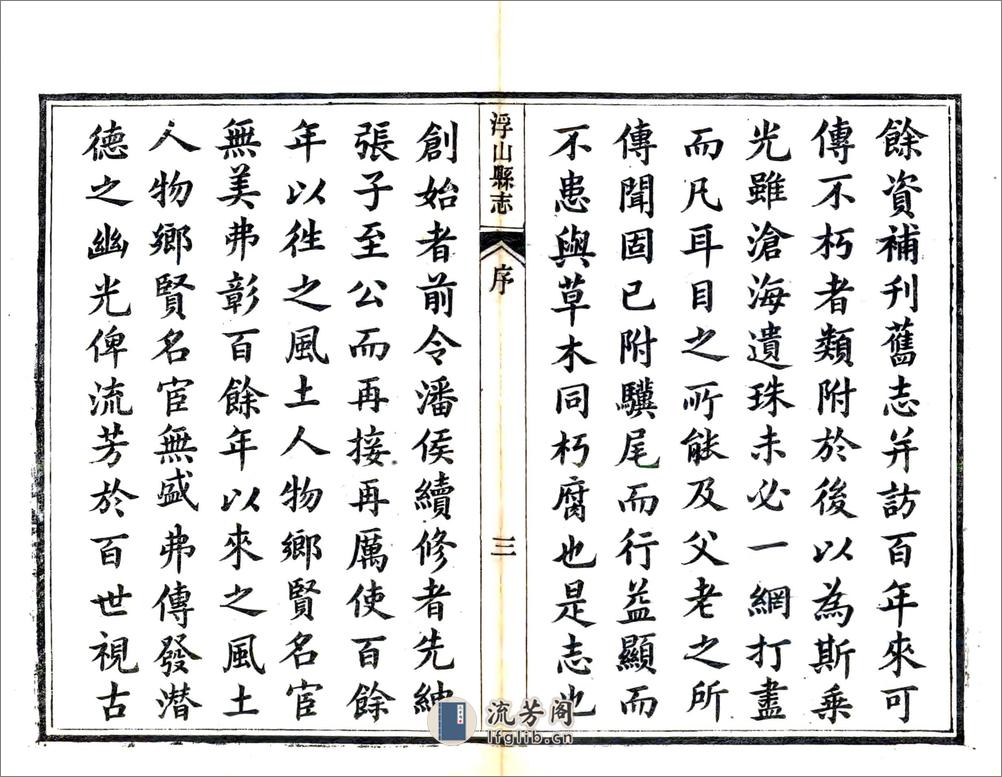 餘資補刊舊志并訪百年來可
傳不朽者類附於後以為斯乗
光雖滄海遺珠未必一網打盡
而凡耳目之所能及父老之所
傳聞固已附驥尾而行益顯而
不患與草木同朽腐也是志也
浮山縣志
序
三
創始者前令潘侯續修者先紳
張子至公而再接再厲使百餘
年以徃之風土人物鄉賢名宦
無美弗彰百餘年以來之風土
人物鄉賢名宦無盛弗傳發潛
德之幽光俾流芳於百世視古
流芳阁
lfglib.cn